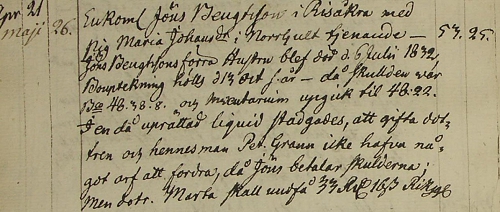 Apr. 21 Enkoml Jöns Bengtsson i Risåkra med
maji 26. Pig Maria Johansdt i Norrhult tjenande — 53. 25.
Jöns Bengtssons förra Hustru blef död d. 6 Julii 1832,
Bouptekning hölls d 13 Oct s. år — då skulden var
Bco 48. 38. 8. och Inventarium upgick til 48. 22.
I en då uprättad liquid stadgades, att gifta dot-
tren och hennes man Pet. Grann icke hafva nå-
got arf att fordra, då Jöns betalar skulderna;
men dotr. Marta skall undfå 33 Rd 16 s Riksg